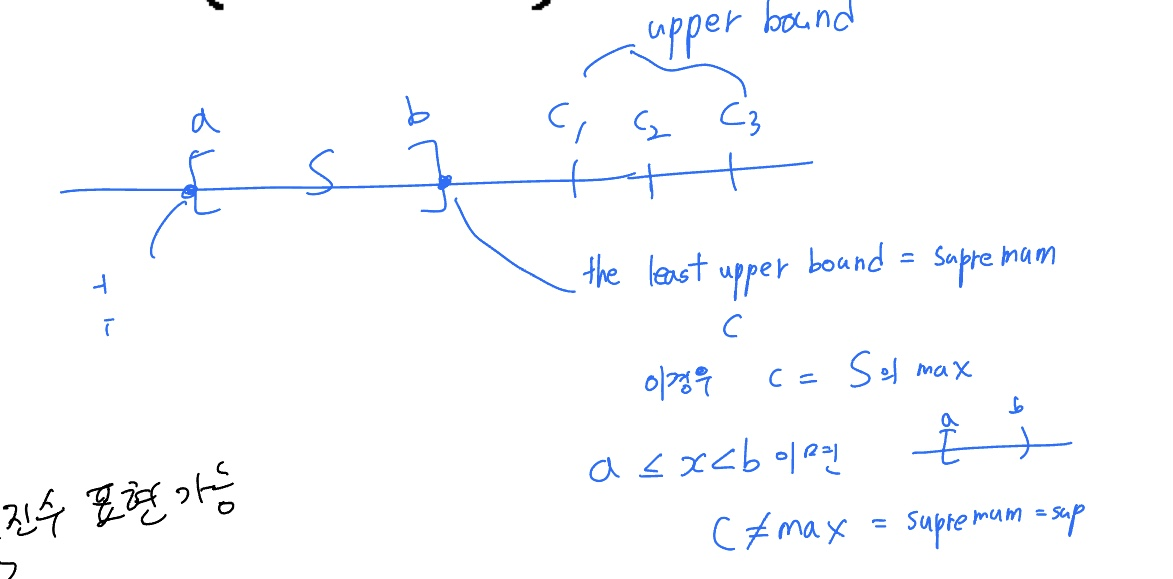 upper bound
a b C₁ C₂ C₃
[ S ]
the least upper bound = supremum
C
이경우 C = S의 max
a b
a ≤ x < b 이라면
C ≠ max = supremum = sup
진수 표현 가능